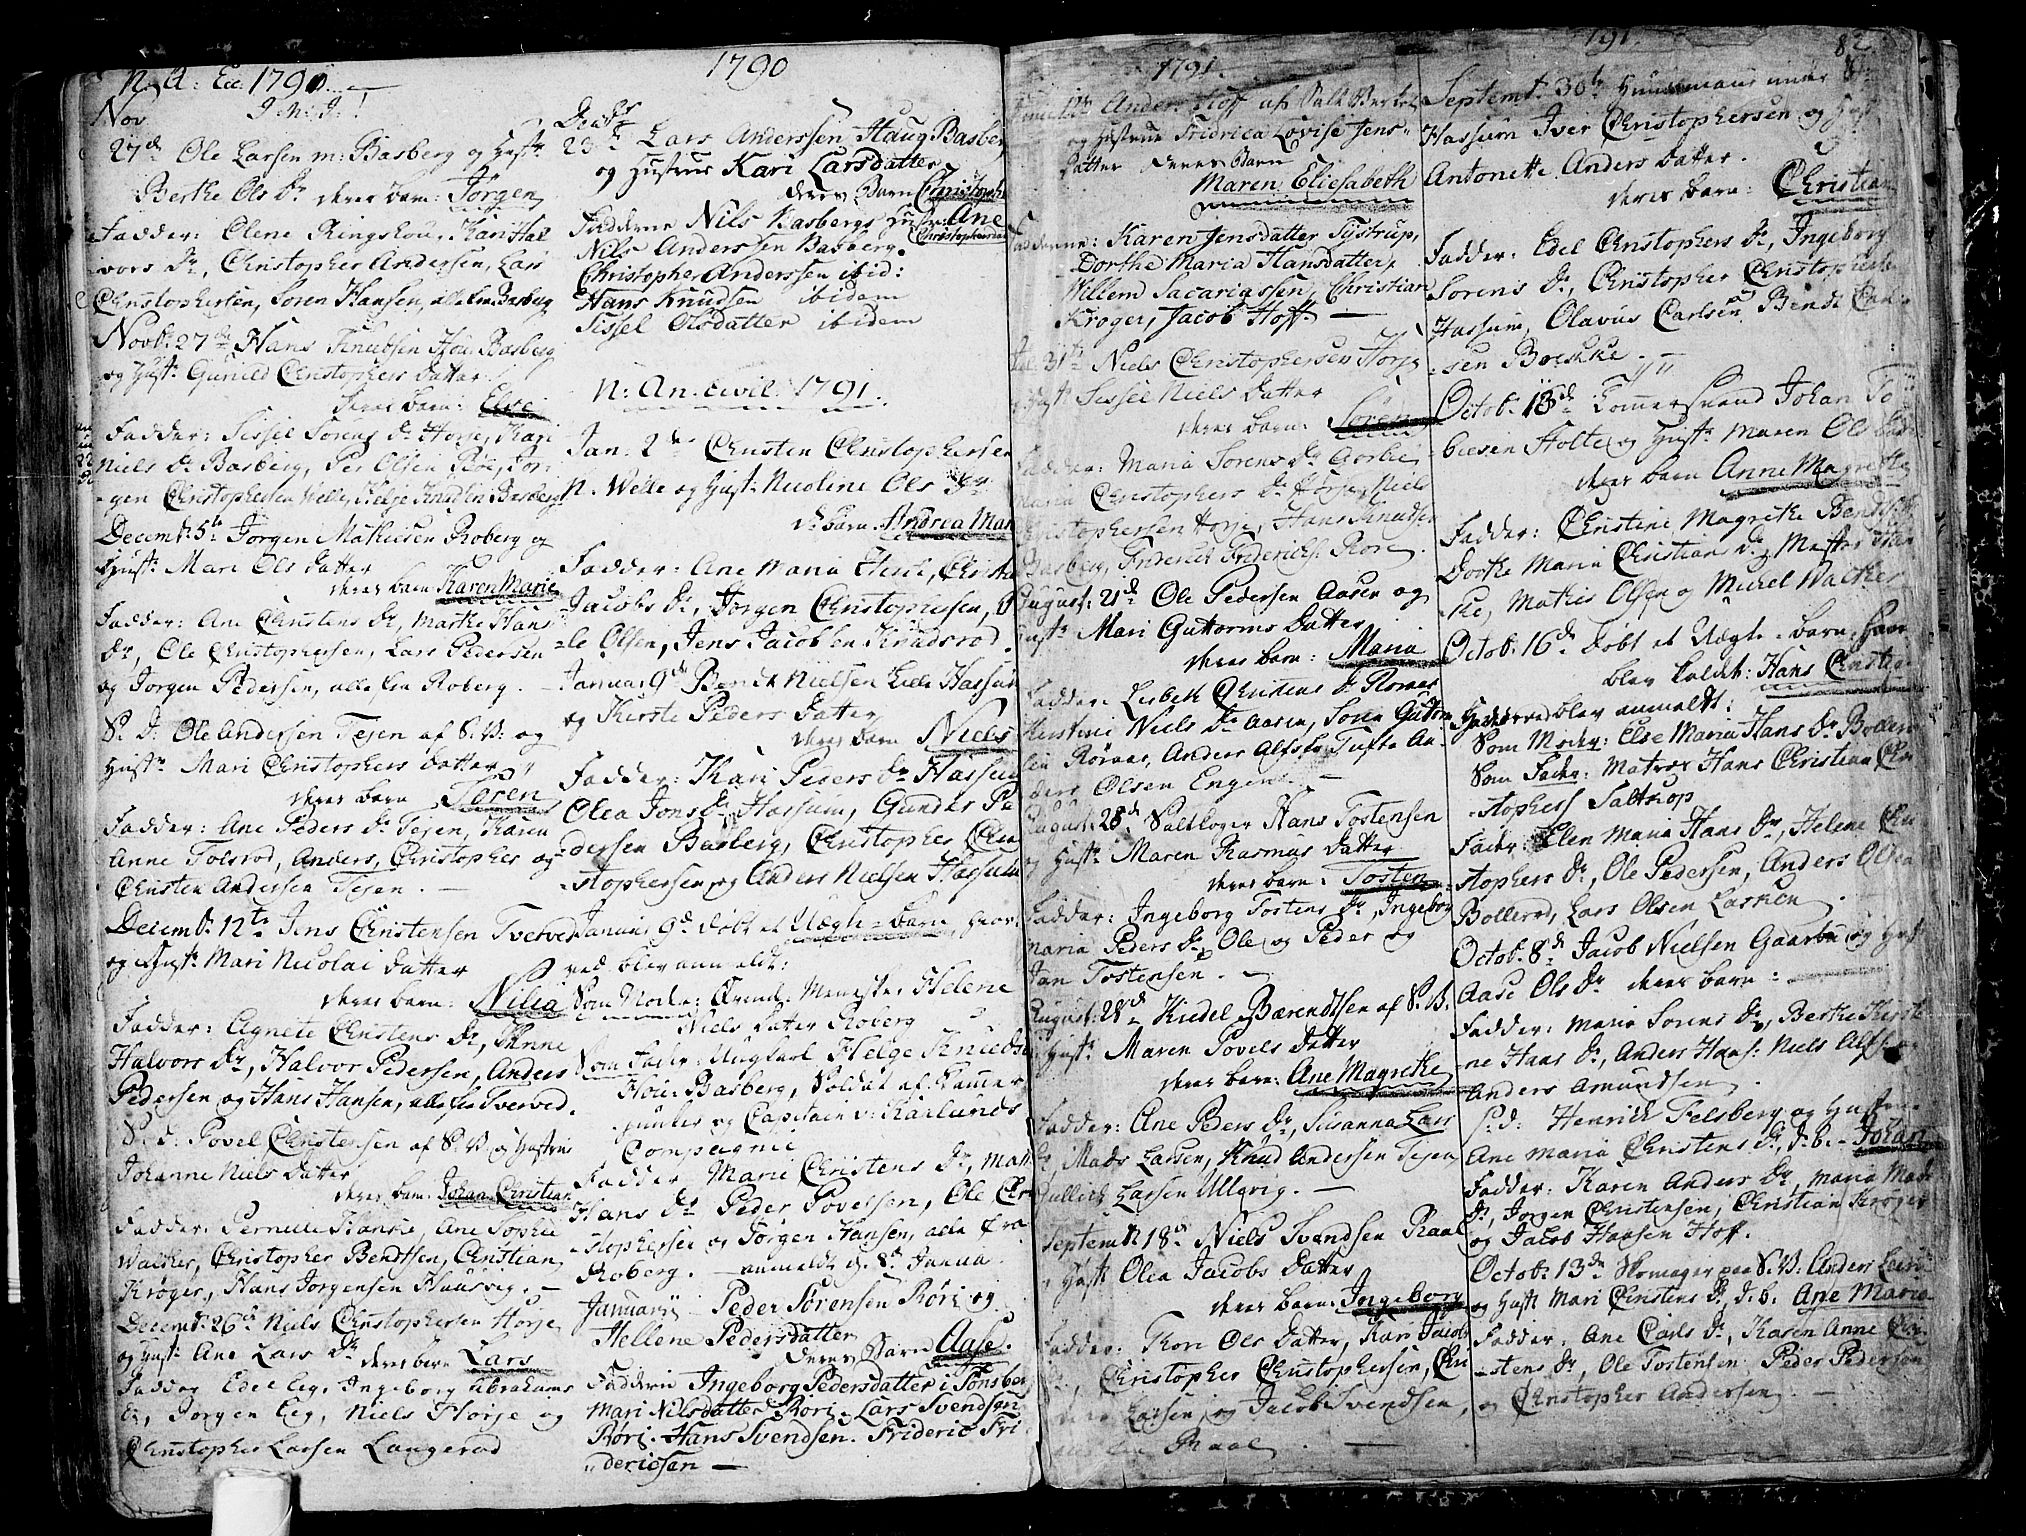 N. A: Ec. 1790.
Nov J. N. J.!
27de Ole Larsen m: Basberg og Hust:
Berthe Ols Dr deres barn: Jörgen
Fadder: Olene Ringshou, Kari Hal
vors Dr, Christopher Andersen, Lars
Christophersen, Soren Hansen, alle fra Basberg
Novb: 27de Hans Knudsen Hou Basberg
og Hust: Gunild Christophers datter
deres barn: Else
Fadder: Sissel Sorens Dr Horje, Kari
Niels Dr Basberg, Per Olsen Röe, Jor-
gen Christophersen Welle, Helje Knudsen Basberg
Decemb: 5te Jorgen Mathisen Roberg og
Hust: Mari Ols datter
deres barn Karen Marie
Fadder: Ane Christens Dr, Marthe Hans
Dr, Ole Christophersen, Lars Pedersen
og Jorgen Pedersen, alle fra Roberg.
S. D: Ole Andersen Tejen af S.V: og
Hust: Mari Christophers datter
deres barn
Fadder: Ane Peders Dr Tejen, Karen
Anne Tolsrod, Anders, Christopher og
Christen Andersen Tejen.
Decemb: 12te Jens Christensen Tverved
og Hust: Mari Nicolai datter
deres barn: Nilia
Fadder: Agnete Christens Dr, Anne
Halvors Dr, Halvor Pedersen, Anders
Pedersen og Hans Hansen, alle fra Tverved.
S. d: Povel Christensen af S. V. og Hustrue
Johanne Niels datter
deres barn: Johan Christian
Fadder: Pernille Hanche, Ane Sophie
Walcher, Christopher Bendtsen, Christian
Kröger, Hans Jorgensen Haasvig.
Decemb: 26de Niels Christophersen Horje
og Hust: Ane Lars Dr deres barn Lars
Fadder Edel Eeg, Ingeborg Abrahams
Dr, Jorgen Eeg, Niels Horje og
Christopher Larsen Langerod
1790
23de Lars Anderssen Haug Basberg
og Hustrue Kari Larsdatter
deres Barn Christopher
Fadderne Nils Basbergs Hustru Ane
Christophersdatter
Nils Anderssen Basberg
Christopher Anderssen ibid:
Hans Knudsen ibidem
Sissel Olsdatter ibidem
N: An. civil. 1791.
Jan. 2de Christen Christophersen
N. Welle og Hust: Nicoline Ols Dr
ds barn. Andrea Mar
Fadder: Ane Maria
Jacobs Dr, Jorgen Christophersen, O
le Olsen, Jens Jacobsen Knudsrod.
Januar 9de Bendt Nielsen Lille Hassum
og Kirste Peders datter
deres barn Niels
Fadder: Kari Peders Dr Hassum
Olea Jons Dr Hassum, Gunder Pe
dersen Basberg, Christopher Chri
stophersen og Anders Nielsen Hassum
Januar 9de döbt et Uægte-barn, hvor-
ved blev anmeldt:
Som Moder: Qvinde-Menneske Helene
Niels datter Roberg
Som Fader: Ungkarl Helge Knudsen
Hou Basberg, Soldat af Kamer
junker og Capitain v: Karlunds
Compagnie
Fadder Marie Christens Dr,
Hans Dr Peder Povelsen, Ole Chri
stophersen og Jörgen Hansen, alle fra
Roberg. anmeldt d. 8de Janua.
Januarii Peder Sörensen Röri og
Hellene Pedersdatter
deres Barn Aase.
Fadderne Ingeborg Pedersdatter i Tönsberg
Mari Nilsdatter Röri. Lars Svendsen
Röri. Hans Svendsen. Frideric Fri
dericsen
1791.
Junii 12te Anders Hoff af Salt Verket
og Hustrue Fridrica Lovise Jens-
datter deres Barn
Maren Eliesabeth
Fadderne: Karen Jensdatter Tystrup,
Dorthe Maria Hansdatter,
Willem Sacariassen, Christian
Kröger, Jacob Hoff.
Jul. 31te Niels Christophersen Horje
og Hust: Sissel Niels datter
deres barn: Sören
Fadder: Maria Sorens Dr
Maria Christophers Dr Horje, Niels
Christophersen Horje, Hans Knudsen
Basberg, Friderich Friderichs: Rore.
August: 21de Ole Pedersen Aasen og
Hust: Mari Guttorms datter
deres barn: Maria
Fadder: Lisbeth Christens Dr
Kirstine Niels Dr Aasen, Soren Guttorm
sen Röraas, Anders Tufte An-
ders Olsen Engene.
August: 28de Saltkoger Hans Tostensen
og Hust: Maren Rasmus datter
deres barn: Tosten
Fadder: Ingeborg Tostens Dr, Ingeborg
Maria Peders Dr, Ole og Peder og
Jan Tostensen.
August: 28de Kiedel Bærendtsen af S.V.
Hust: Maren Povels datter
deres barn: Ane Magrethe
Fadder: Ane Peders Dr, Susanna Lars
Dr, Mads Larsen, Knud Andersen Tejen
Gullich Larsen Ullevig.
Septemb 18de Niels Svendsen Raael
og Hust: Olea Jacobs datter
deres barn: Ingeborg
Fadder: Kari Ols datter, Kari Jacobs
Dr, Christopher Christophersen, Chri
Larsen og Jacob Svendsen,
Raael
791. 82
Septemb: 30te Huusmand under
Hassum Iver Christophersen og Hust
Antonette Anders datter.
deres barn: Christian
Fadder: Edel Christophers Dr, Ingeborg
Sorens Dr, Christopher Christophersen
Hassum, Olavus Carlsen, Bendt
sen
Octob. Johan To
biesen Holte og Hust: Maren Ols dat
deres barn Anne Magrethe
Fadder: Christine Magrethe Bendts
Dorthe Maria Christians Dr, Mester
ke, Mathis Olsen og Michel Walcher
Octob. 16de döbt et Uægte-barn, hvor
blev kaldet: Hans Christian
blev anmeldt:
Som Moder: Else Maria Hans Dr
Som Fader: Matros Hans Christian Chri
stophers Saltrop
Fader: Elen Maria Hans Dr, Helene Chri
stophers Dr, Ole Pedersen, Anders Olsen
Bollerod, Lars Olsen
Octob. 8de Jacob Nielsen Gaarbu og Hust
Aase Ols Dr deres barn:
Fadder: Maria Sorens Dr, Berthe Kirsti
ne Hans Dr, Anders Hans: Niels og
Anders Amundsen.
S. d: Henrich Felsberg og Hustrue
Ane Maria Christens Dr, d. b. Johan
Fadder: Karen Anders Dr, Maria Mads
Dr, Jörgen Christensen, Christian Kröger
og Jacob Hansen Hoff.
Octob. 13de Skomager paa S.V: Anders
og Hust Mari Christens Dr, d. b. Ane Maria
Fadder: Ane Carls Dr, Karen Anne Chri
stens Dr, Ole Tostensen Peder Pedersen
og Christopher Andersen.